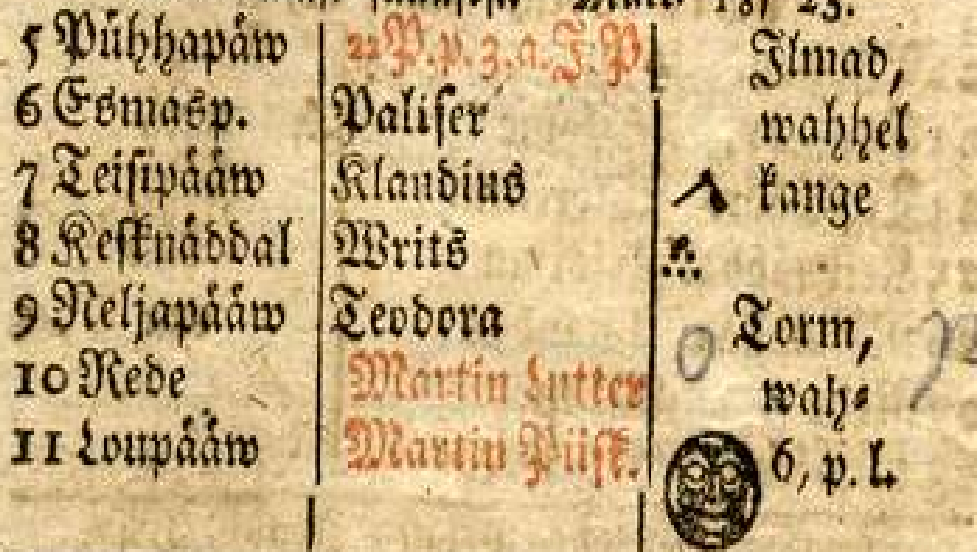 18, 23.
5 Pühhapäw 22 P. p. 3. a. J. P. Ilmad,
6 Esmasp. Paliser wahhel
7 Teisipääw Klaudius kange
8 Kesknäddal Writs
9 Neljapääw Teodora Torm,
10 Rede Martin Lutter wah⸗
11 Loupääw Martin Piisk. 6, p. l.